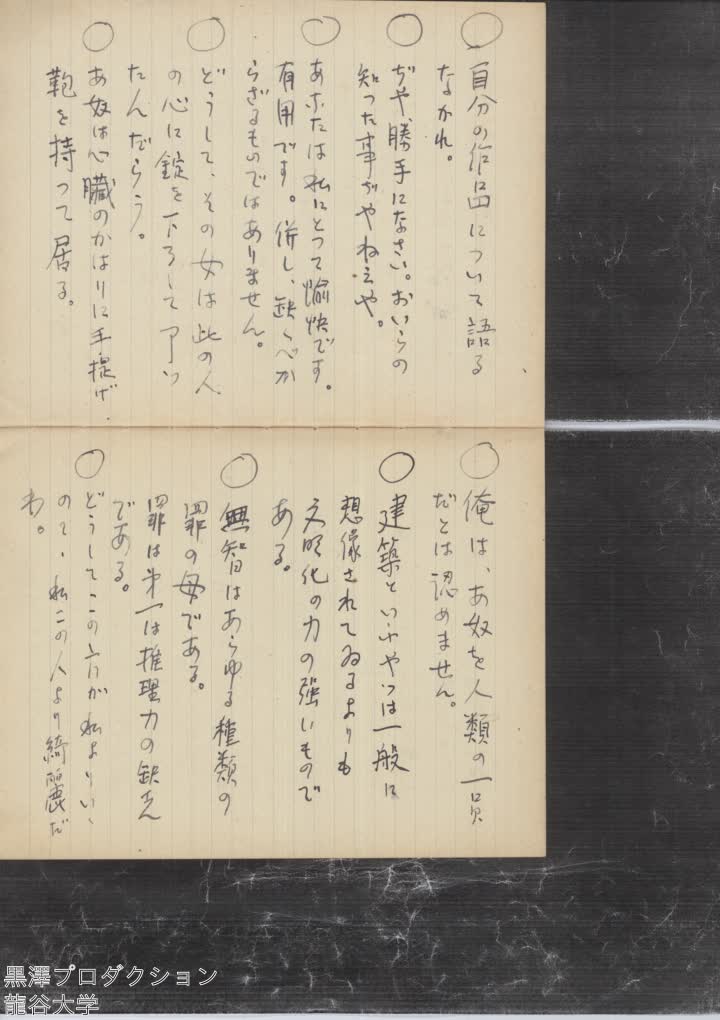 ○
自分の作品について語る
なかれ。
○
ぢや勝手になさい。おいらの
知つた事ぢやねえや。
○
あなたは私にとつて愉快です。
有用です。併し、缺くべか
らざるものではありません。
○
どうして、その女は此の人
の心に錠を下ろして了つ
たんだらう。
○
あ奴は心臓のかはりに手提げ
鞄を持つて居る。
○
俺は、あ奴を人類の一員
だとは認めません。
○
建築といふやつは一般に
想像されてゐるよりも
文明化の力の強いもので
ある。
○
無智はあらゆる種類の
罪の母である。
罪は第一は推理力の缺乏
である。
○
どうしてこの方が私よりいゝ
のて、私この人より綺麗だ
わ。
黒澤プロダクション
龍谷大学